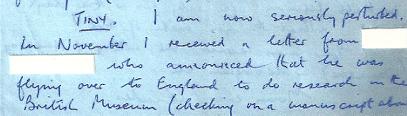 TINY. I am now seriously perturbed.
In November I received a letter from
who announced that he was
flying over to England to do research in the
British Museum (checking on a manuscript